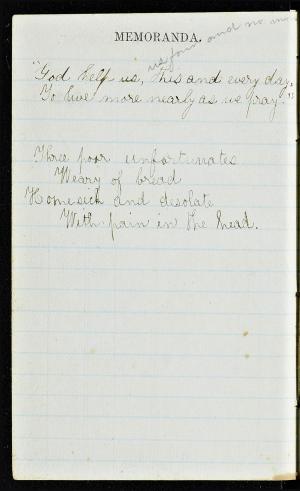 MEMORANDA.
us four and no m
"God help us, this and every day,
To live more nearly as we pray."
Three poor unfortunates
Weary of bread
Homesick and desolate
With pain in the head.